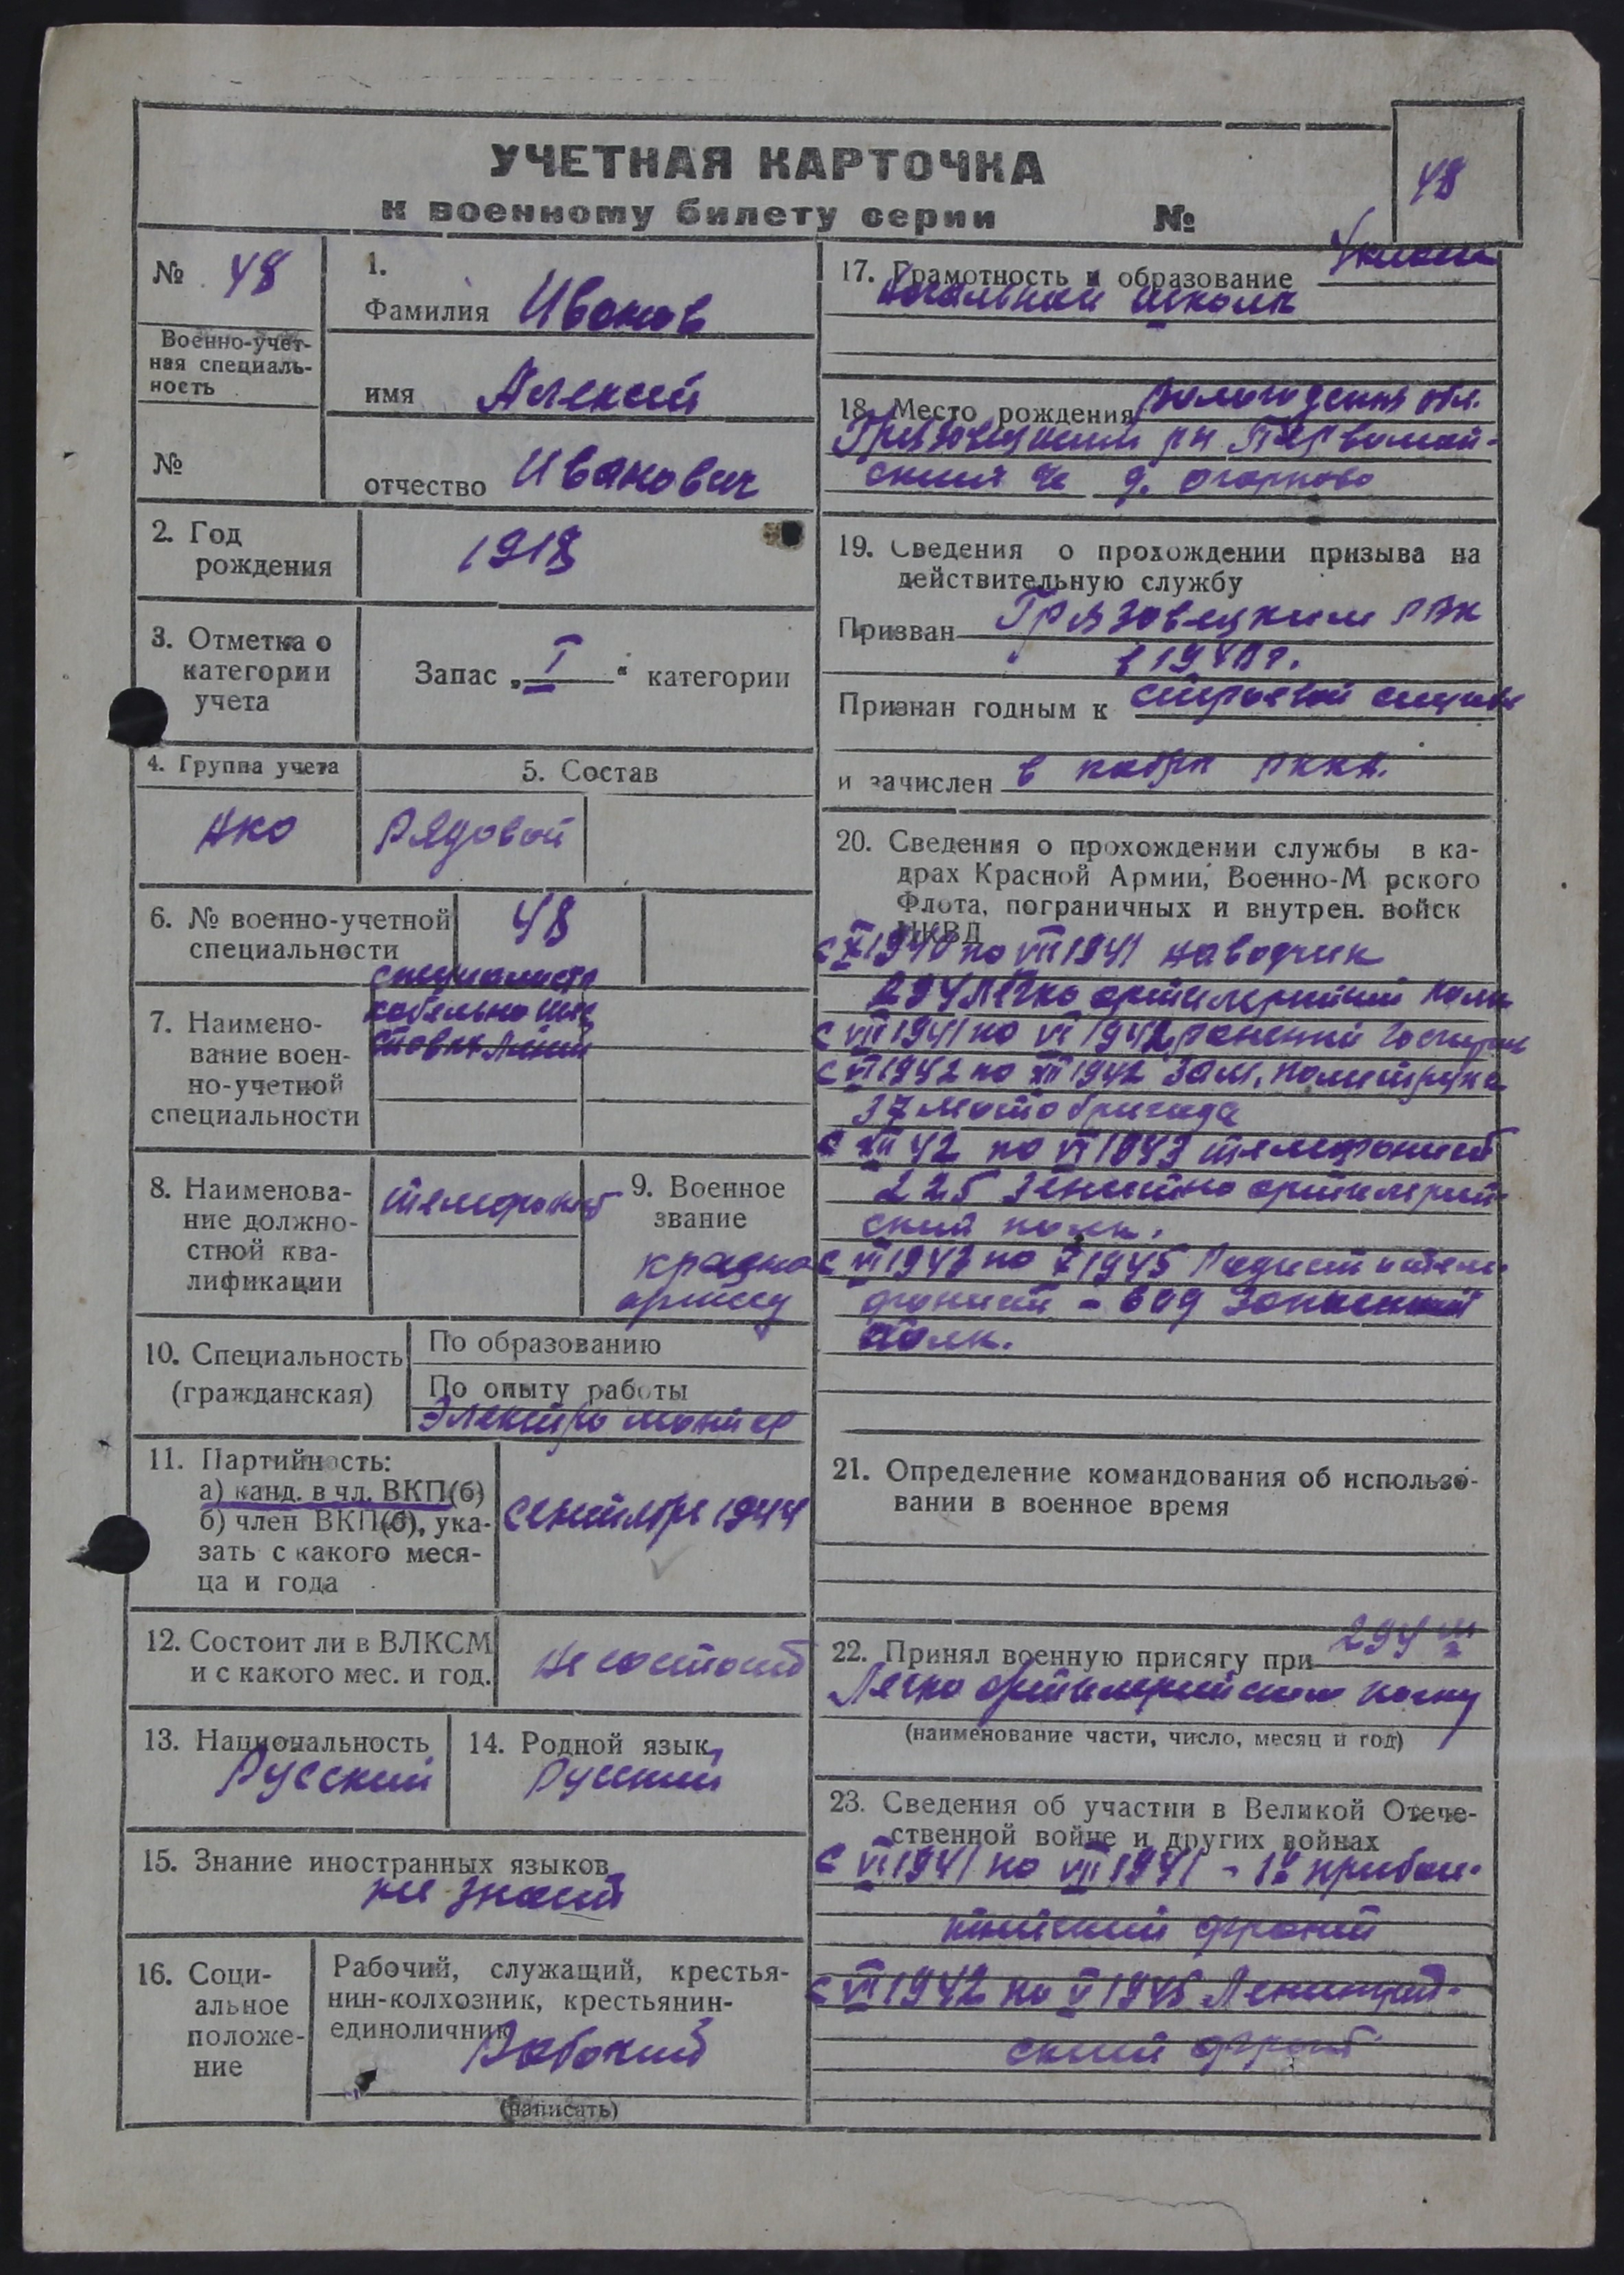 УЧЕТНАЯ КАРТОЧКА
к военному билету серии №
48
№ 48
Военно-учет-
ная специаль-
ность
№
1.
Фамилия Иванов
имя Алексей
отчество Иванович
2. Год
рождения
1918
3. Отметка о
категории
учета
Запас „ I “ категории
4. Группа учета
РКА
5. Состав
Рядовой
6. № военно-учетной
специальности
48
7. Наимено-
вание воен-
но-учетной
специальности
специалист
кабельно шес
товых линий
8. Наименова-
ние должно-
стной ква-
лификации
телефонист
9. Военное
звание
красно
армеец
10. Специальность
(гражданская)
По образованию
По опыту работы
Электро монтер
11. Партийность:
а) канд. в чл. ВКП(б)
б) член ВКП(б), ука-
зать с какого меся-
ца и года
сентябрь 1944
12. Состоит ли в ВЛКСМ
и с какого мес. и год.
не состоит
13. Национальность
Русский
14. Родной язык
Русский
15. Знание иностранных языков
не знает
16. Соци-
альное
положе-
ние
Рабочий, служащий, крестья-
нин-колхозник, крестьянин-
единоличник
Рабочий
(написать)
17. Грамотность и образование 4 класса
Начальной школы
18. Место рождения Вологодская обл.
Грязовецкий рн Первомай-
ский с/с д. Огарково
19. Сведения о прохождении призыва на
действительную службу
Призван Грязовецким РВК
в 1940 г.
Признан годным к строевой службе
и зачислен в кадры РККА.
20. Сведения о прохождении службы в ка-
драх Красной Армии, Военно-М рского
Флота, пограничных и внутрен. войск
НКВД
с X 1940 по VII 1941 наводчик
294 легко артилерийский полк
с VII 1941 по VI 1942 раненый госпиталь
с VI 1942 по XII 1942 Зам. политрука
37 мотобригада
с XII 42 по VI 1943 телефонист
225 зенитно артилерий-
ский полк.
с VI 1943 по X 1945 Радист и теле
фонист - 609 Запасный
полк.
21. Определение командования об использо-
вании в военное время
22. Принял военную присягу при 294 м
Легко артилерийском полку
(наименование части, число, месяц и год)
23. Сведения об участии в Великой Отече-
ственной войне и других войнах
с VI 1941 по VII 1941 - 1й прибал-
тийский фронт
с VI 1942 по V 1945 Ленинград-
ский фронт